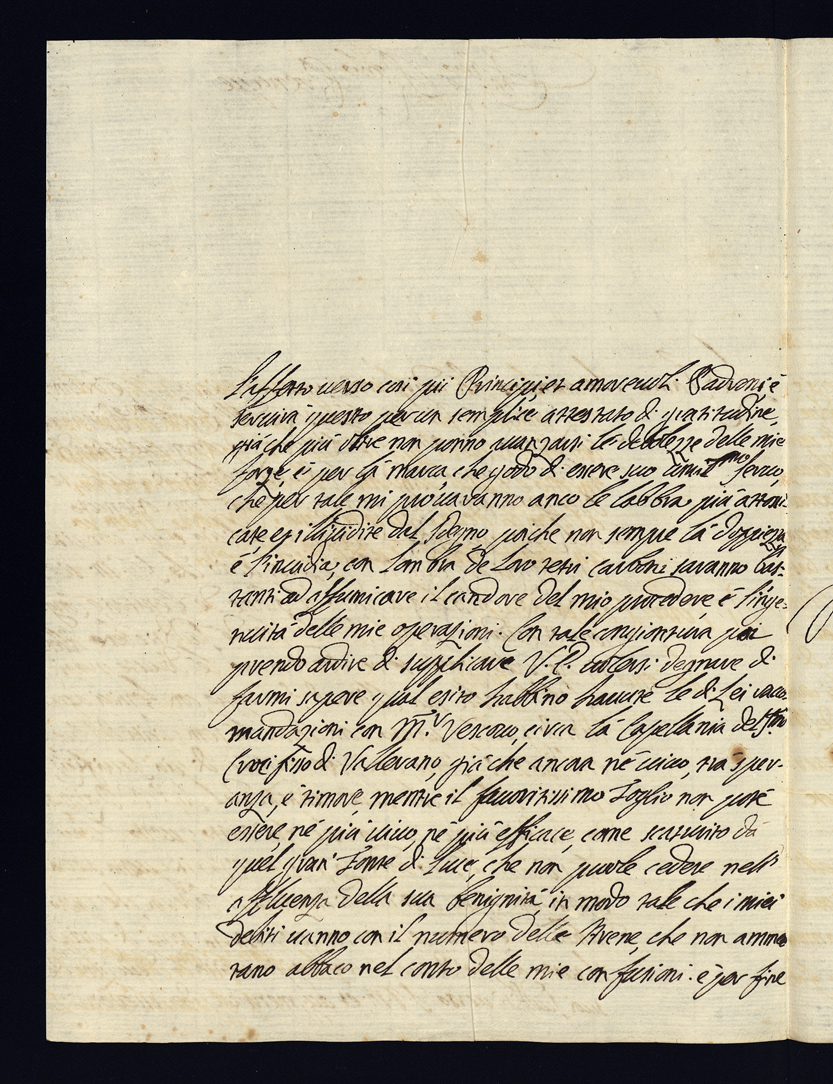 l'affetto verso così pii Principi, et amorevoli Padroni è
servirà questo per un semplice attestato di gratitudine,
già che più oltre non ponno avanzarsi le debolezze delle mie
forze, è per la marca che godo di essere suo servo,
che per tale mi provaranno anco le labbra più
poiche non sempre la doppiezza
è l'incudine, con l'ombra de loro tetri carboni saranno bas-
tanti ad affumicare il candore del mio procedere è l'inge-
nuità delle mie operazioni. Con tale congiontura poi
prendo ardire di supplicare V. E. degnare di
farmi sapere qual esito habbino havute le di Lei racco
mandazioni con M.r Vescovo, circa la Capellania del SS.mo
Crocifisso di Vallerano, già che ancora nè vivo, trà sper-
anza, è timore, mentre il favoritissimo foglio non potè
essere, nè più vivo, nè più efficace, come scaturito da
quel gran Fonte di Luce, che non puole cedere nell'
affluenza della sua benignità, in modo tale che i miei
debiti vanno con il numero delle Arene, che non amme
tano abbaco nel conto delle mie confusioni. è per fine